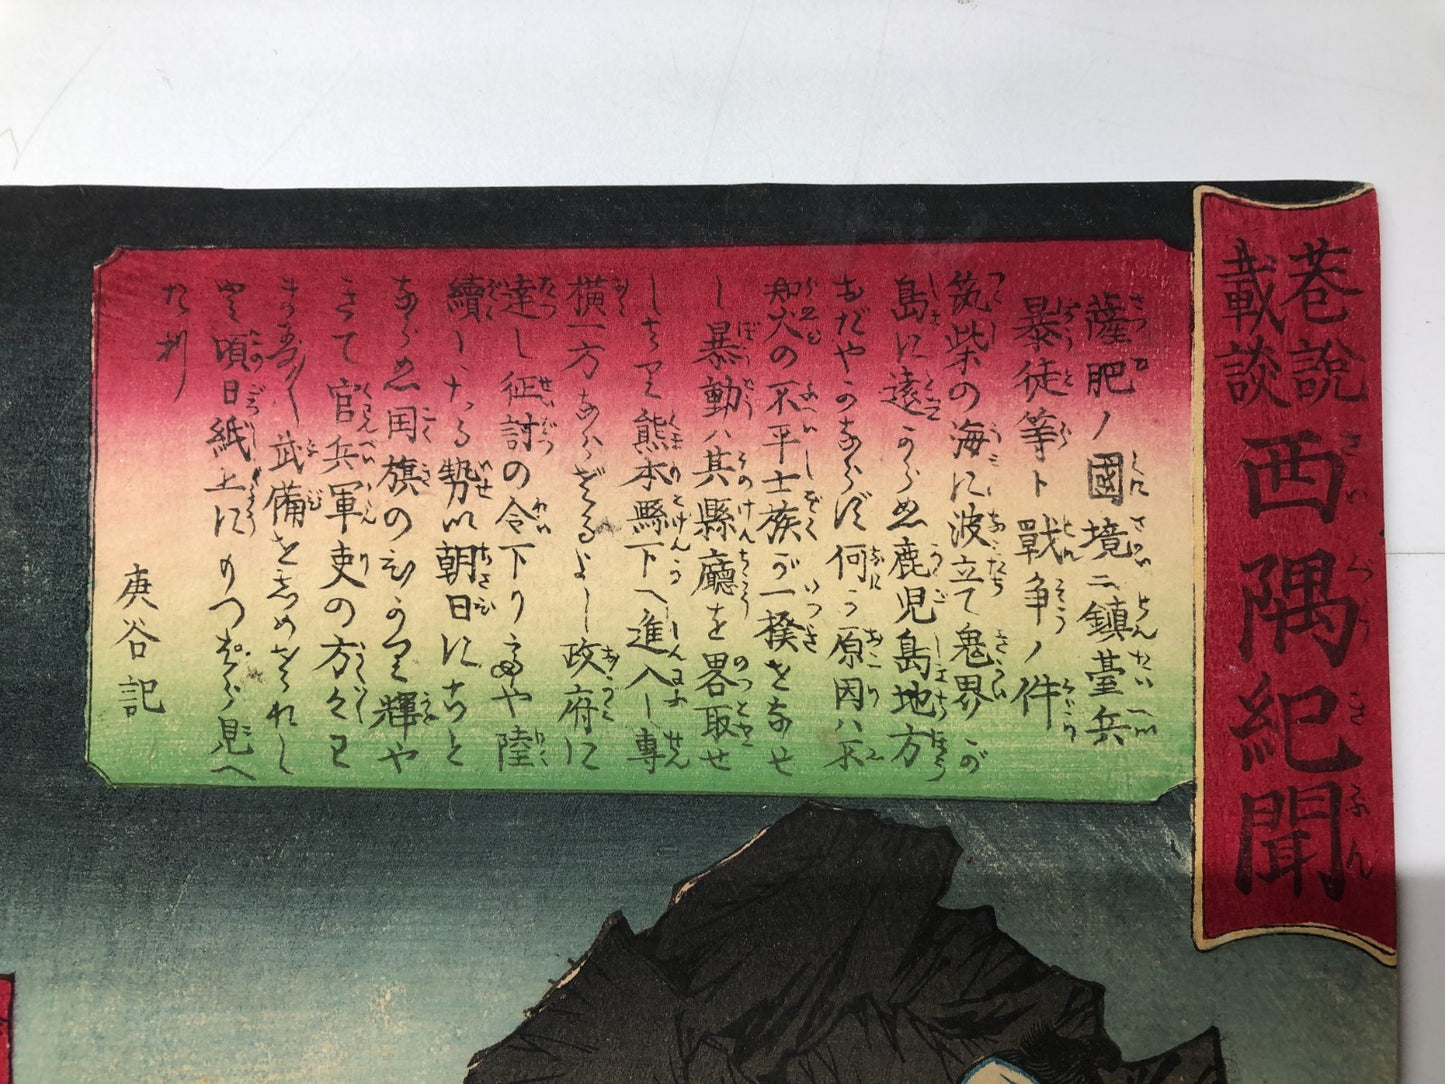 巷説
載談
西隅紀聞
薩肥ノ國境ニ鎮臺兵
暴徒等ト戰争ノ件
筑柴の海に波立て鬼界が
島に遠からぬ鹿児島地方
おだやかならず何か原因ハ不
知火の不平士族が一揆をなせ
し暴動ハ其縣廳を畧取せ
しより熊本縣下へ進入し専
横一方ならざるよし政府に
達し征討の令下り
や陸
續
たる勢ひ朝日に
と
ならぬ国旗のひかり輝や
きて官兵軍吏の方々
武備を
られし
頃日紙上に
見へ
たり
庚谷記